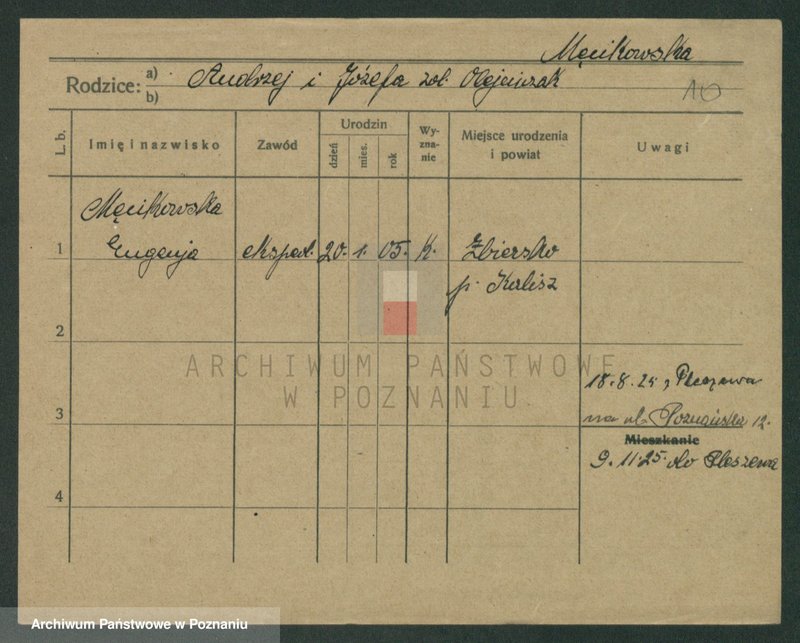 Męcikowska
Rodzice: a) Andrzej i Józefa zol. Olejniczak
b)
10
L. b.
Imię i nazwisko
Zawód
Urodzin
dzień
mies.
rok
Wy-
zna-
nie
Miejsce urodzenia
i powiat
Uwagi
Męcikowska
1 Eugenja ekspod. 20. 1. 05. K. Zbiersko
p. Kalisz
2
ARCHIWUM PAŃSTWOWE
W POZNANIU
18.8.25 z Pleszewa
na ul. Poznańska 12.
3
Mieszkanie
9.11.25. do Pleszewa
4
Archiwum Państwowe w Poznaniu